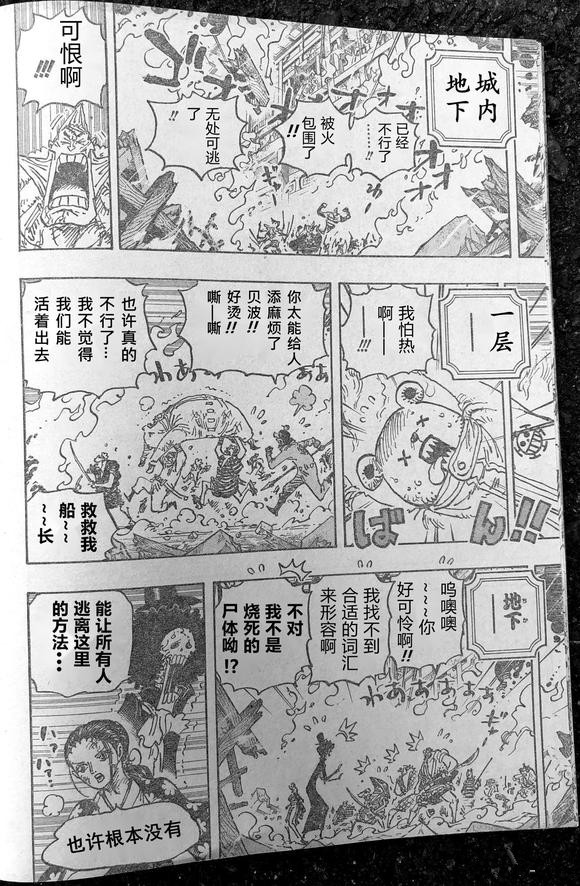 城内
地下
已经
不行了
……!!
被火
包围了
!!
无处可逃
了
!!
可恨啊
!!!
一层
——
我怕热
啊——
——!!!
ばん!!
你太能给人
添麻烦了
贝波!!
好烫!!
嘶—嘶
也许真的
不行了…
我不觉得
我们能
活着出去
わあぁ
わあぁ
救救我
船~~
~~长
地下
——
呜噢噢
~~~你
好可怜啊!!
我找不到
合适的词汇
来形容啊
不对
我不是
烧死的
尸体呦!?
わあぁ
能让所有人
逃离这里
的方法…
也许根本没有